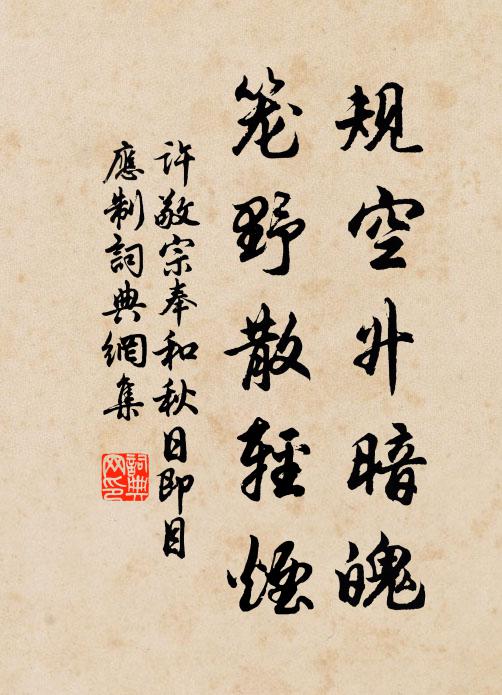 規空升暗魄
笼野散輕煙
許敬宗奉和秋日即目
應制詞典網集
詞典
网印